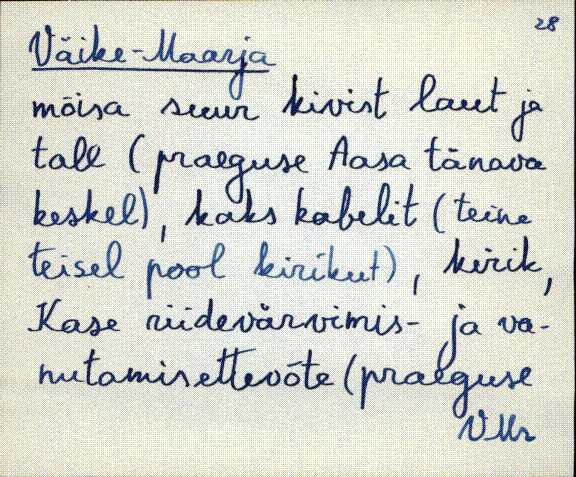 28
Väike-Maarja
mõisa suur kivist laut ja
tall (praeguse Aasa tänava
keskel), kaks kabelit (teine
teisel pool kirikut), kirik,
Kase riidevärvimis- ja va-
nutamisettevõte (praeguse
VMr